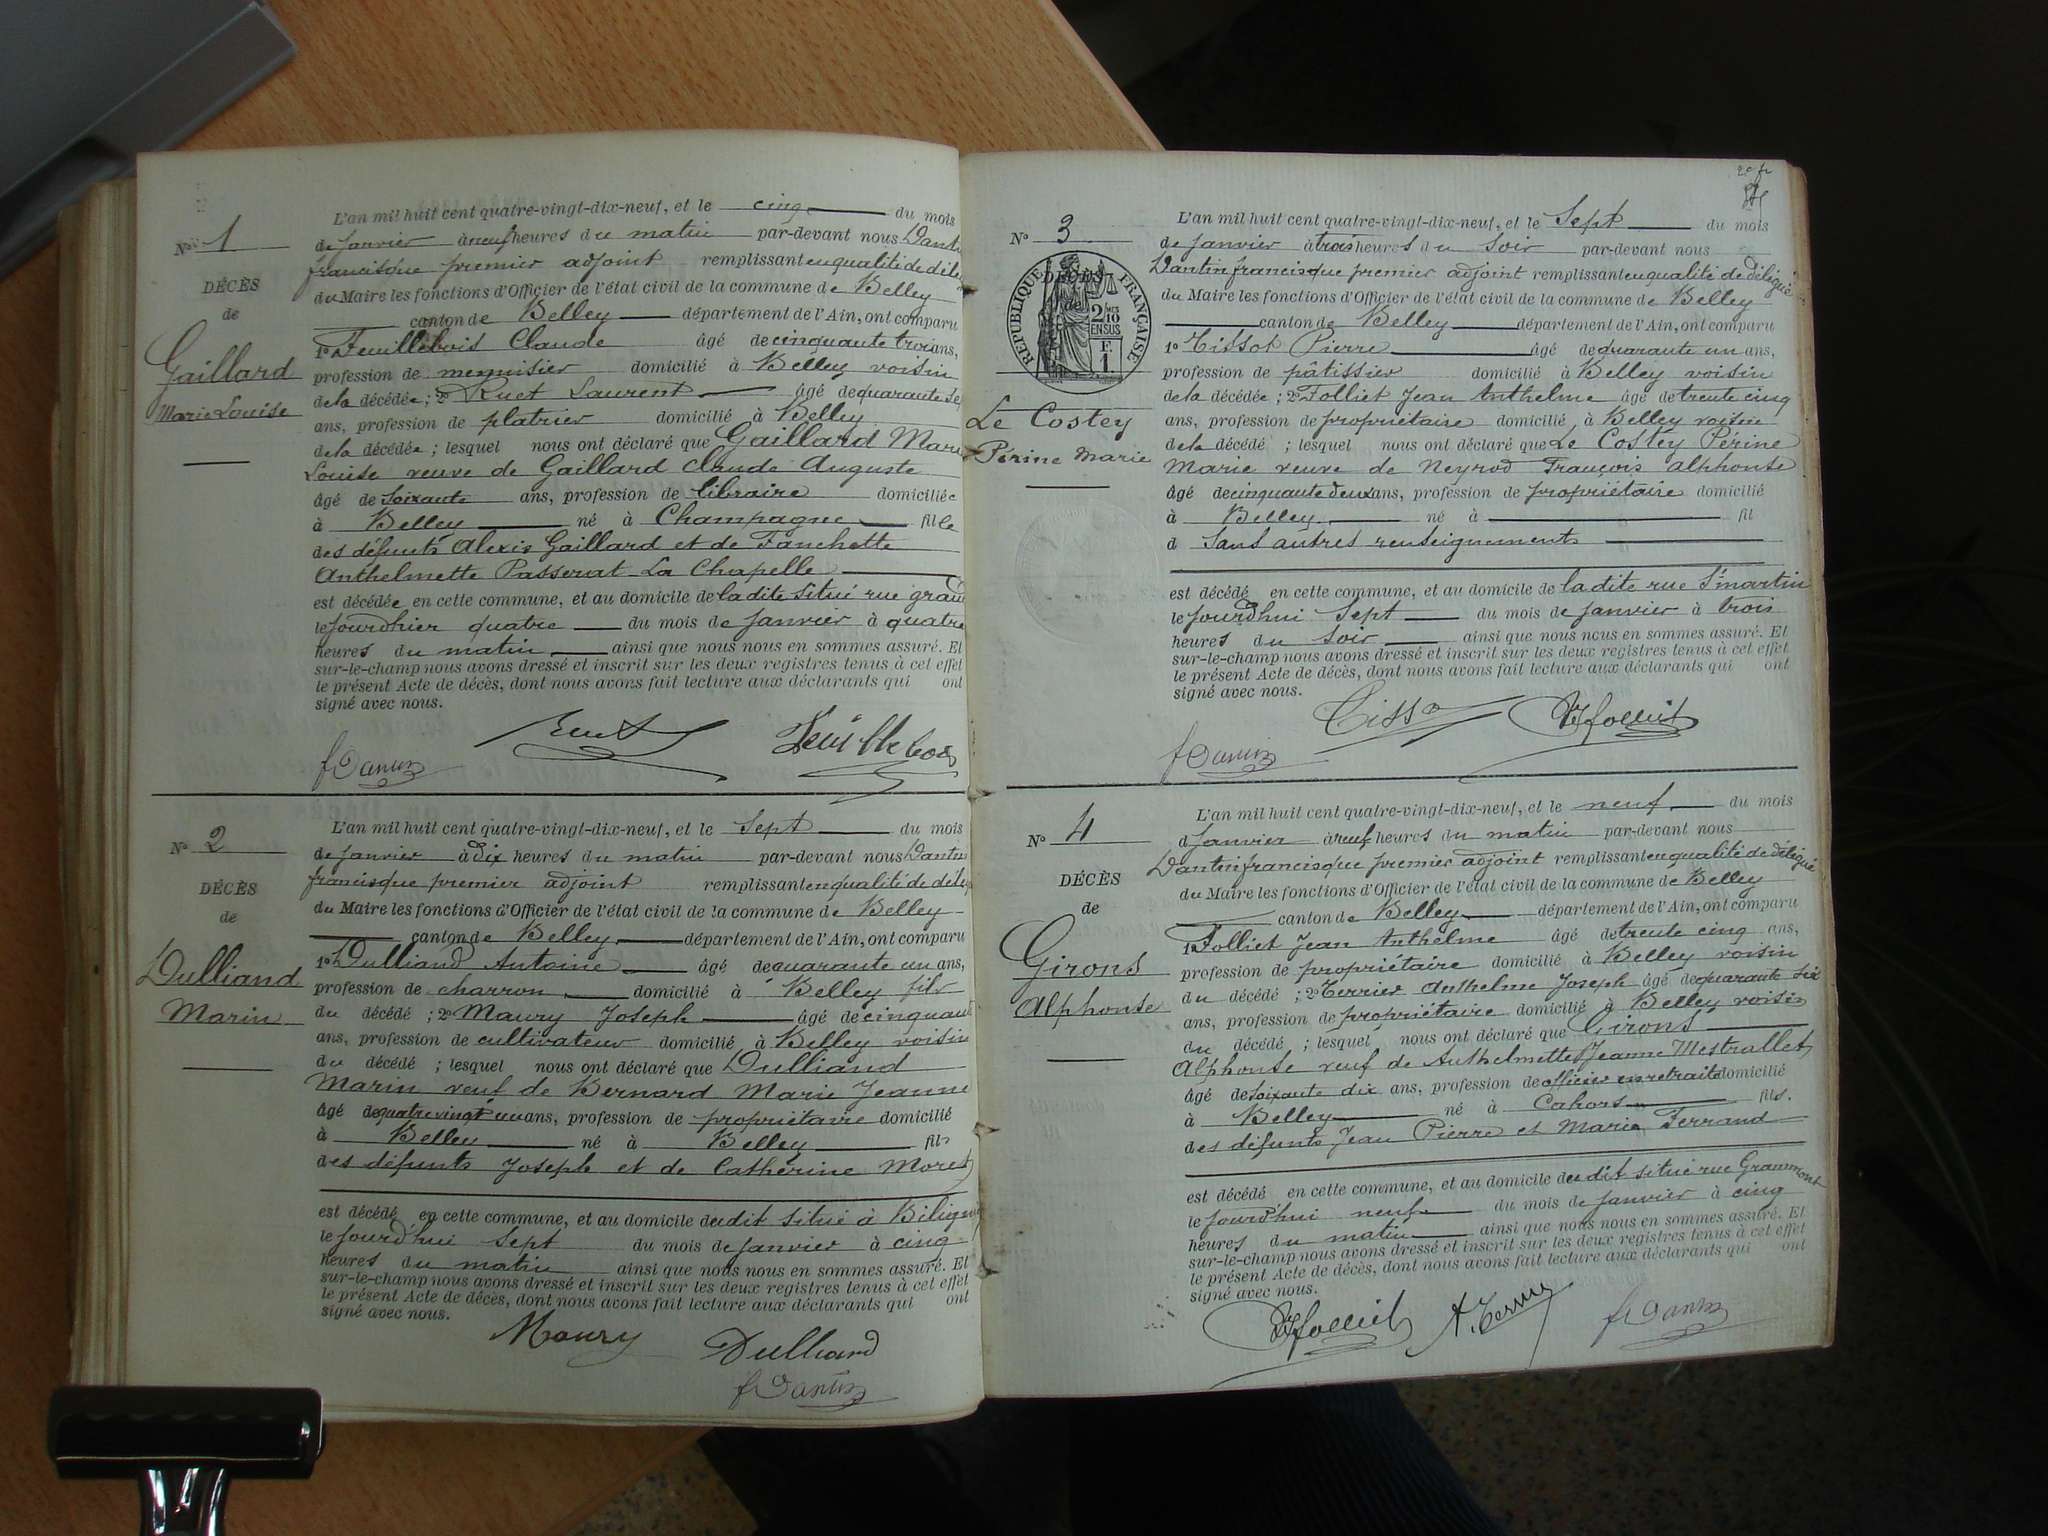 L'an mil huit cent quatre-vingt-dix-neuf, et le cinq du mois
N° 1
de janvier à neuf heures du matin par-devant nous
francisque premier adjoint remplissant en qualité de
DÉCÈS
du Maire les fonctions d'Officier de l'état civil de la commune de Belley
de
canton de Belley département de l'Ain, ont comparu
1° Feuillebois Claude âgé de cinquante trois ans,
Gaillard
profession de menuisier domicilié à Belley voisin
Marie Louise
de la décédée ; 2° Ruet Laurent âgé de quarante
ans, profession de platrier domicilié à Belley
de la décédée ; lesquel nous ont déclaré que Gaillard
Louise veuve de Gaillard Claude Auguste
âgé de soixante ans, profession de libraire domiciliée
à Belley né à Champagne fille
des défunts Alexis Gaillard et de Fanchette
Anthelmette Passerat La Chapelle
est décédée en cette commune, et au domicile de la dite situé rue
le jourd'hier quatre du mois de janvier à quatre
heures du matin ainsi que nous nous en sommes assuré. Et
sur-le-champ nous avons dressé et inscrit sur les deux registres tenus à cet effet
le présent Acte de décès, dont nous avons fait lecture aux déclarants qui ont
signé avec nous.
Ruet Feuillebois
f Dantin
L'an mil huit cent quatre-vingt-dix-neuf, et le Sept du mois
N° 2
de janvier à dix heures du matin par-devant nous
francisque premier adjoint remplissant en qualité de
DÉCÈS
du Maire les fonctions d'Officier de l'état civil de la commune de Belley
de
canton de Belley département de l'Ain, ont comparu
Dulliand
1° Dulliand Antoine âgé de quarante un ans,
profession de charron domicilié à Belley fils
Marin
du décédé ; 2° Maury Joseph âgé de
ans, profession de cultivateur domicilié à Belley voisin
du décédé ; lesquel nous ont déclaré que Dulliand
Marin veuf de Bernard Marie Jeanne
âgé de quatre vingt un ans, profession de propriétaire domicilié
à Belley né à Belley fils
des défunts Joseph et de Catherine Moret
est décédé en cette commune, et au domicile dudit situé à
le jourd'hui Sept du mois de janvier à cinq
heures du matin ainsi que nous nous en sommes assuré. Et
sur-le-champ nous avons dressé et inscrit sur les deux registres tenus à cet effet
le présent Acte de décès, dont nous avons fait lecture aux déclarants qui ont
signé avec nous.
Maury
Dulliand
f Dantin
L'an mil huit cent quatre-vingt-dix-neuf, et le Sept du mois
N° 3
de janvier à trois heures du soir par-devant nous
Dantin francisque premier adjoint remplissant en qualité de délégué
DÉCÈS
de
RÉPUBLIQUE FRANÇAISE
2/10 EN SUS
F. 1.
du Maire les fonctions d'Officier de l'état civil de la commune de Belley
canton de Belley département de l'Ain, ont comparu
1° Tissot Pierre âgé de quarante un ans,
profession de pâtissier domicilié à Belley voisin
de la décédée ; 2° Folliet Jean Anthelme âgé de trente cinq
Le Costey
ans, profession de propriétaire domicilié à Belley voisin
Périne Marie
de la décédé ; lesquel nous ont déclaré que Le Costey Périne
Marie veuve de Neyrod François Alphonse
âgé de cinquante deux ans, profession de propriétaire domicilié
à Belley né à fil
d Sans autres renseignements
est décédé en cette commune, et au domicile de la dite rue St martin
le jourd'hui Sept du mois de janvier à trois
heures du soir ainsi que nous nous en sommes assuré. Et
sur-le-champ nous avons dressé et inscrit sur les deux registres tenus à cet effet
le présent Acte de décès, dont nous avons fait lecture aux déclarants qui ont
signé avec nous.
Tissot Folliet
f Dantin
L'an mil huit cent quatre-vingt-dix-neuf, et le neuf du mois
N° 4
d janvier à neuf heures du matin par-devant nous
Dantin francisque premier adjoint remplissant en qualité de délégué
DÉCÈS
du Maire les fonctions d'Officier de l'état civil de la commune de Belley
de
canton de Belley département de l'Ain, ont comparu
1° Folliet Jean Anthelme âgé de trente cinq ans,
Girons
profession de propriétaire domicilié à Belley voisin
Alphonse
du décédé ; 2° Terrier Anthelme Joseph âgé de quarante six
ans, profession de propriétaire domicilié à Belley voisin
du décédé ; lesquel nous ont déclaré que Girons
Alphonse veuf de Anthelmette Jeanne Mestrallet
âgé de soixante dix ans, profession de officier en retraite domicilié
à Belley né à Cahors fils.
des défunts Jean Pierre et Marie Ferrand
est décédé en cette commune, et au domicile dudit situé rue Grammont
le jourd'hui neuf du mois de janvier à cinq
heures du matin ainsi que nous nous en sommes assuré. Et
sur-le-champ nous avons dressé et inscrit sur les deux registres tenus à cet effet
le présent Acte de décès, dont nous avons fait lecture aux déclarants qui ont
signé avec nous.
Folliet A. Terrier f Dantin